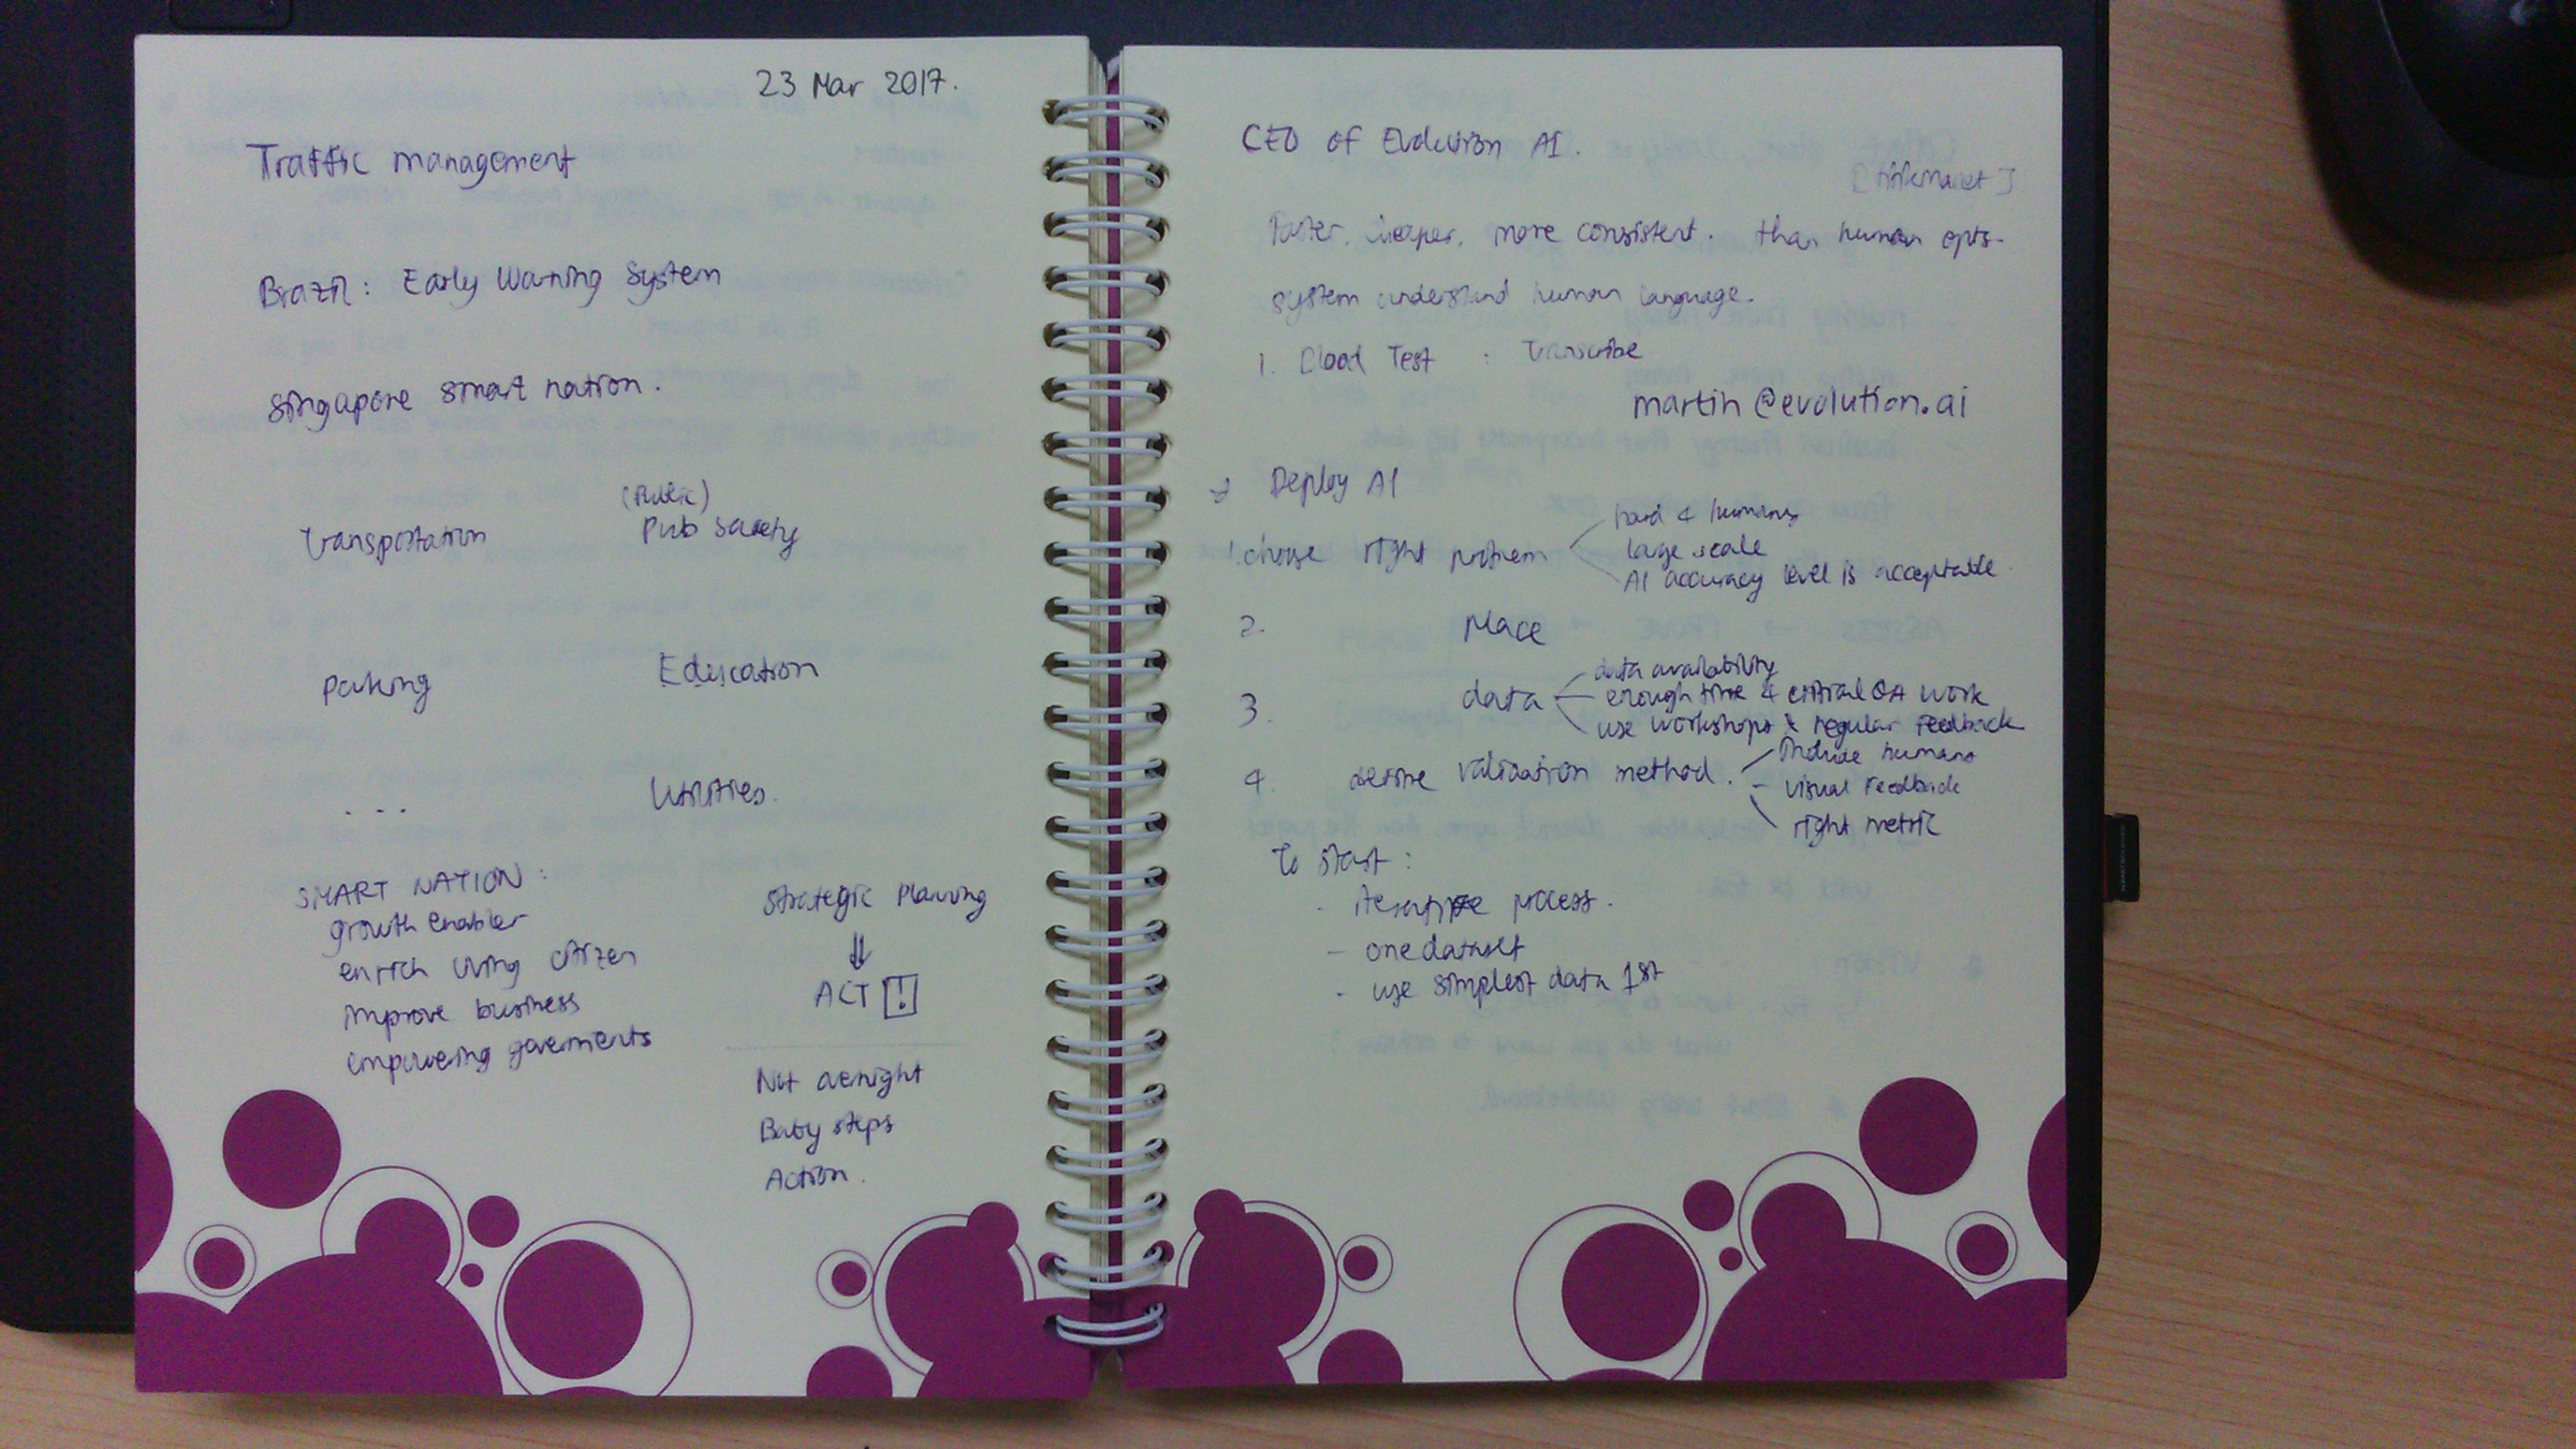 23 Mar 2017.
Traffic management
Brazil: Early Warning System
Singapore smart nation.
(Public)
Transportation Pub Safety
Parking Education
... Utilities.
SMART NATION:
growth enabler
enrich living citizen
improve business
empowering goverments
Strategic Planning
⇓
ACT !
Not overnight
Baby steps
Action.
CEO of Evolution AI.
Faster, cheaper, more consistent. than human opts.
system understand human language.
1. Test : Transcribe
martin@evolution.ai
→ Deploy AI
1. choose right problem
hard 4 humans
large scale
AI accuracy level is acceptable.
2. Place
3. data
data availability
enough time 4 critical QA work
use workshops & regular feedback
4. define validation method.
Include humans
- visual feedback
right metric
To start:
- iterative process.
- one dataset
- use simplest data 1st